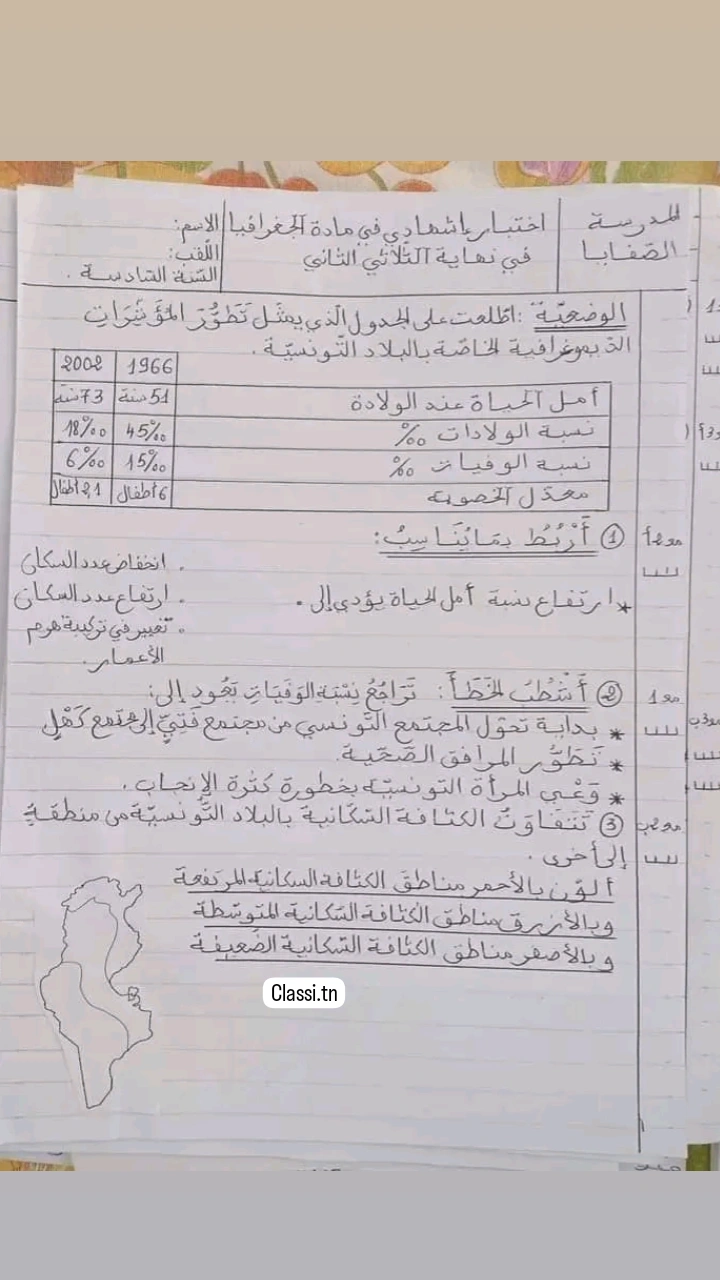 المدرسة
الصّفايا
اختبار إشهادي في مادة الجغرافيا
في نهاية الثّلاثي الثّاني
الاسم:
اللّقب:
السّنة السّادسة.
الوضعيّة: اطّلعت على الجدول الّذي يمثّل تَطَوُّرَ المُؤَشِّرَاتِ
الدّيموغرافية الخاصّة بالبلاد التّونسيّة.
1966 2002
أمل الحياة عند الولادة 51 سنة 73 سنة
نسبة الولادات ‰ 45‰ 18‰
نسبة الوفيات ‰ 15‰ 6‰
معدّل الخصوبة 6 أطفال 2,1 أطفال
① أَرْبُطُ بِمَا يُنَاسِبُ:
* ارتفاع نسبة أمل الحياة يؤدي إلى •
• انخفاض عدد السكان
• ارتفاع عدد السكان
• تغيير في تركيبة هرم
الأعمار.
② أَشْطُبُ الخَطَأَ: تَرَاجُعُ نِسْبَةِ الوَفَيَاتِ يَعُودُ إلى:
* بداية تحوّل المجتمع التّونسي من مجتمع فَتِيٍّ إلى مجتمع كَهْلٍ
* تَطَوُّر المرافق الصّحّية.
* وَعْي المرأة التونسيّة بخطورة كثرة الإنجاب.
③ تَتَفَاوَتُ الكثافة السّكّانية بالبلاد التُّونسيّة من منطقة
إلى أخرى.
ألوّن بالأحمر مناطق الكثافة السكانية المرتفعة
وبالأزرق مناطق الكثافة السّكانية المتوسّطة
وبالأصفر مناطق الكثافة السّكانية الضّعيفة
مع 2 أ
مع 1
مع 2 ب
Classi.tn